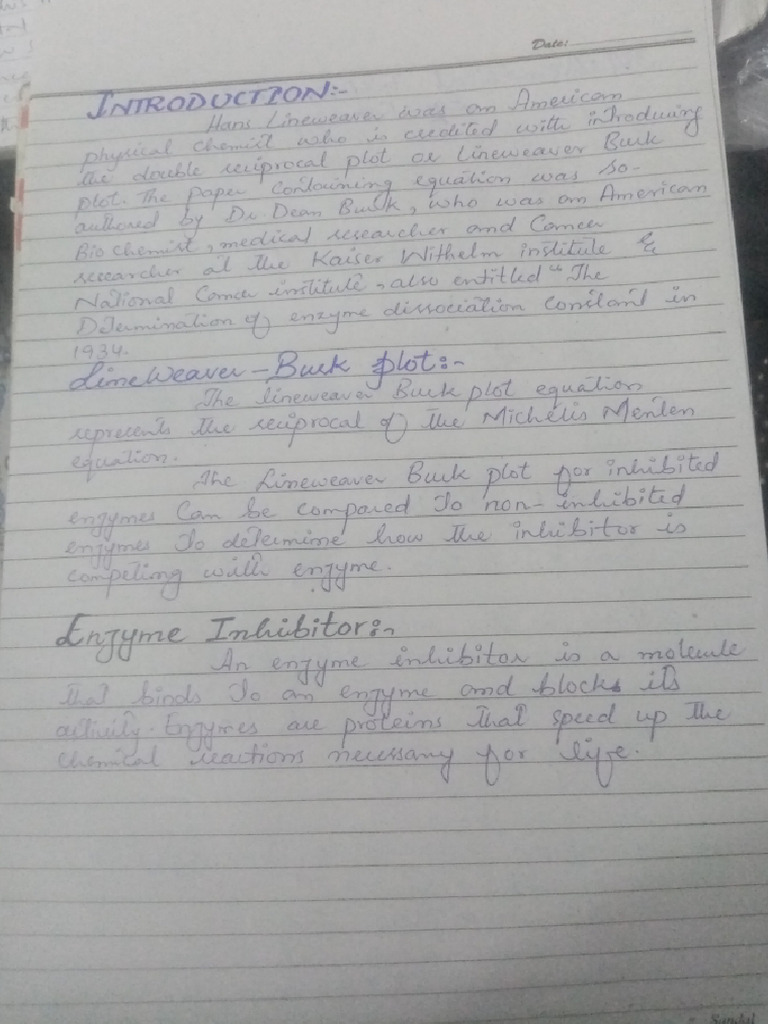 Date:
INTRODUCTION:-
Hans Lineweaver was an American
physical chemist who is credited with introducing
the double reciprocal plot or Lineweaver Burk
plot. The paper containing equation was so-
authored by Dr. Dean Burk, who was an American
Bio chemist, medical researcher and Cancer
researcher at the Kaiser Withelm institute &
National Cancer institute, also entitled "The
Determination of enzyme dissociation constant in
1934.
LineWeaver-Burk plot:-
The lineweaver Burk plot equation
represents the reciprocal of the Michelis Menten
equation.
The Lineweaver Burk plot for inhibited
enzymes Can be compared to non-inhibited
enzymes to determine how the inhibitor is
competing with enzyme.
Enzyme Inhibitor:-
An enzyme inhibitor is a molecule
that binds to an enzyme and blocks its
activity. Enzymes are proteins that speed up the
chemical reactions necessary for life.